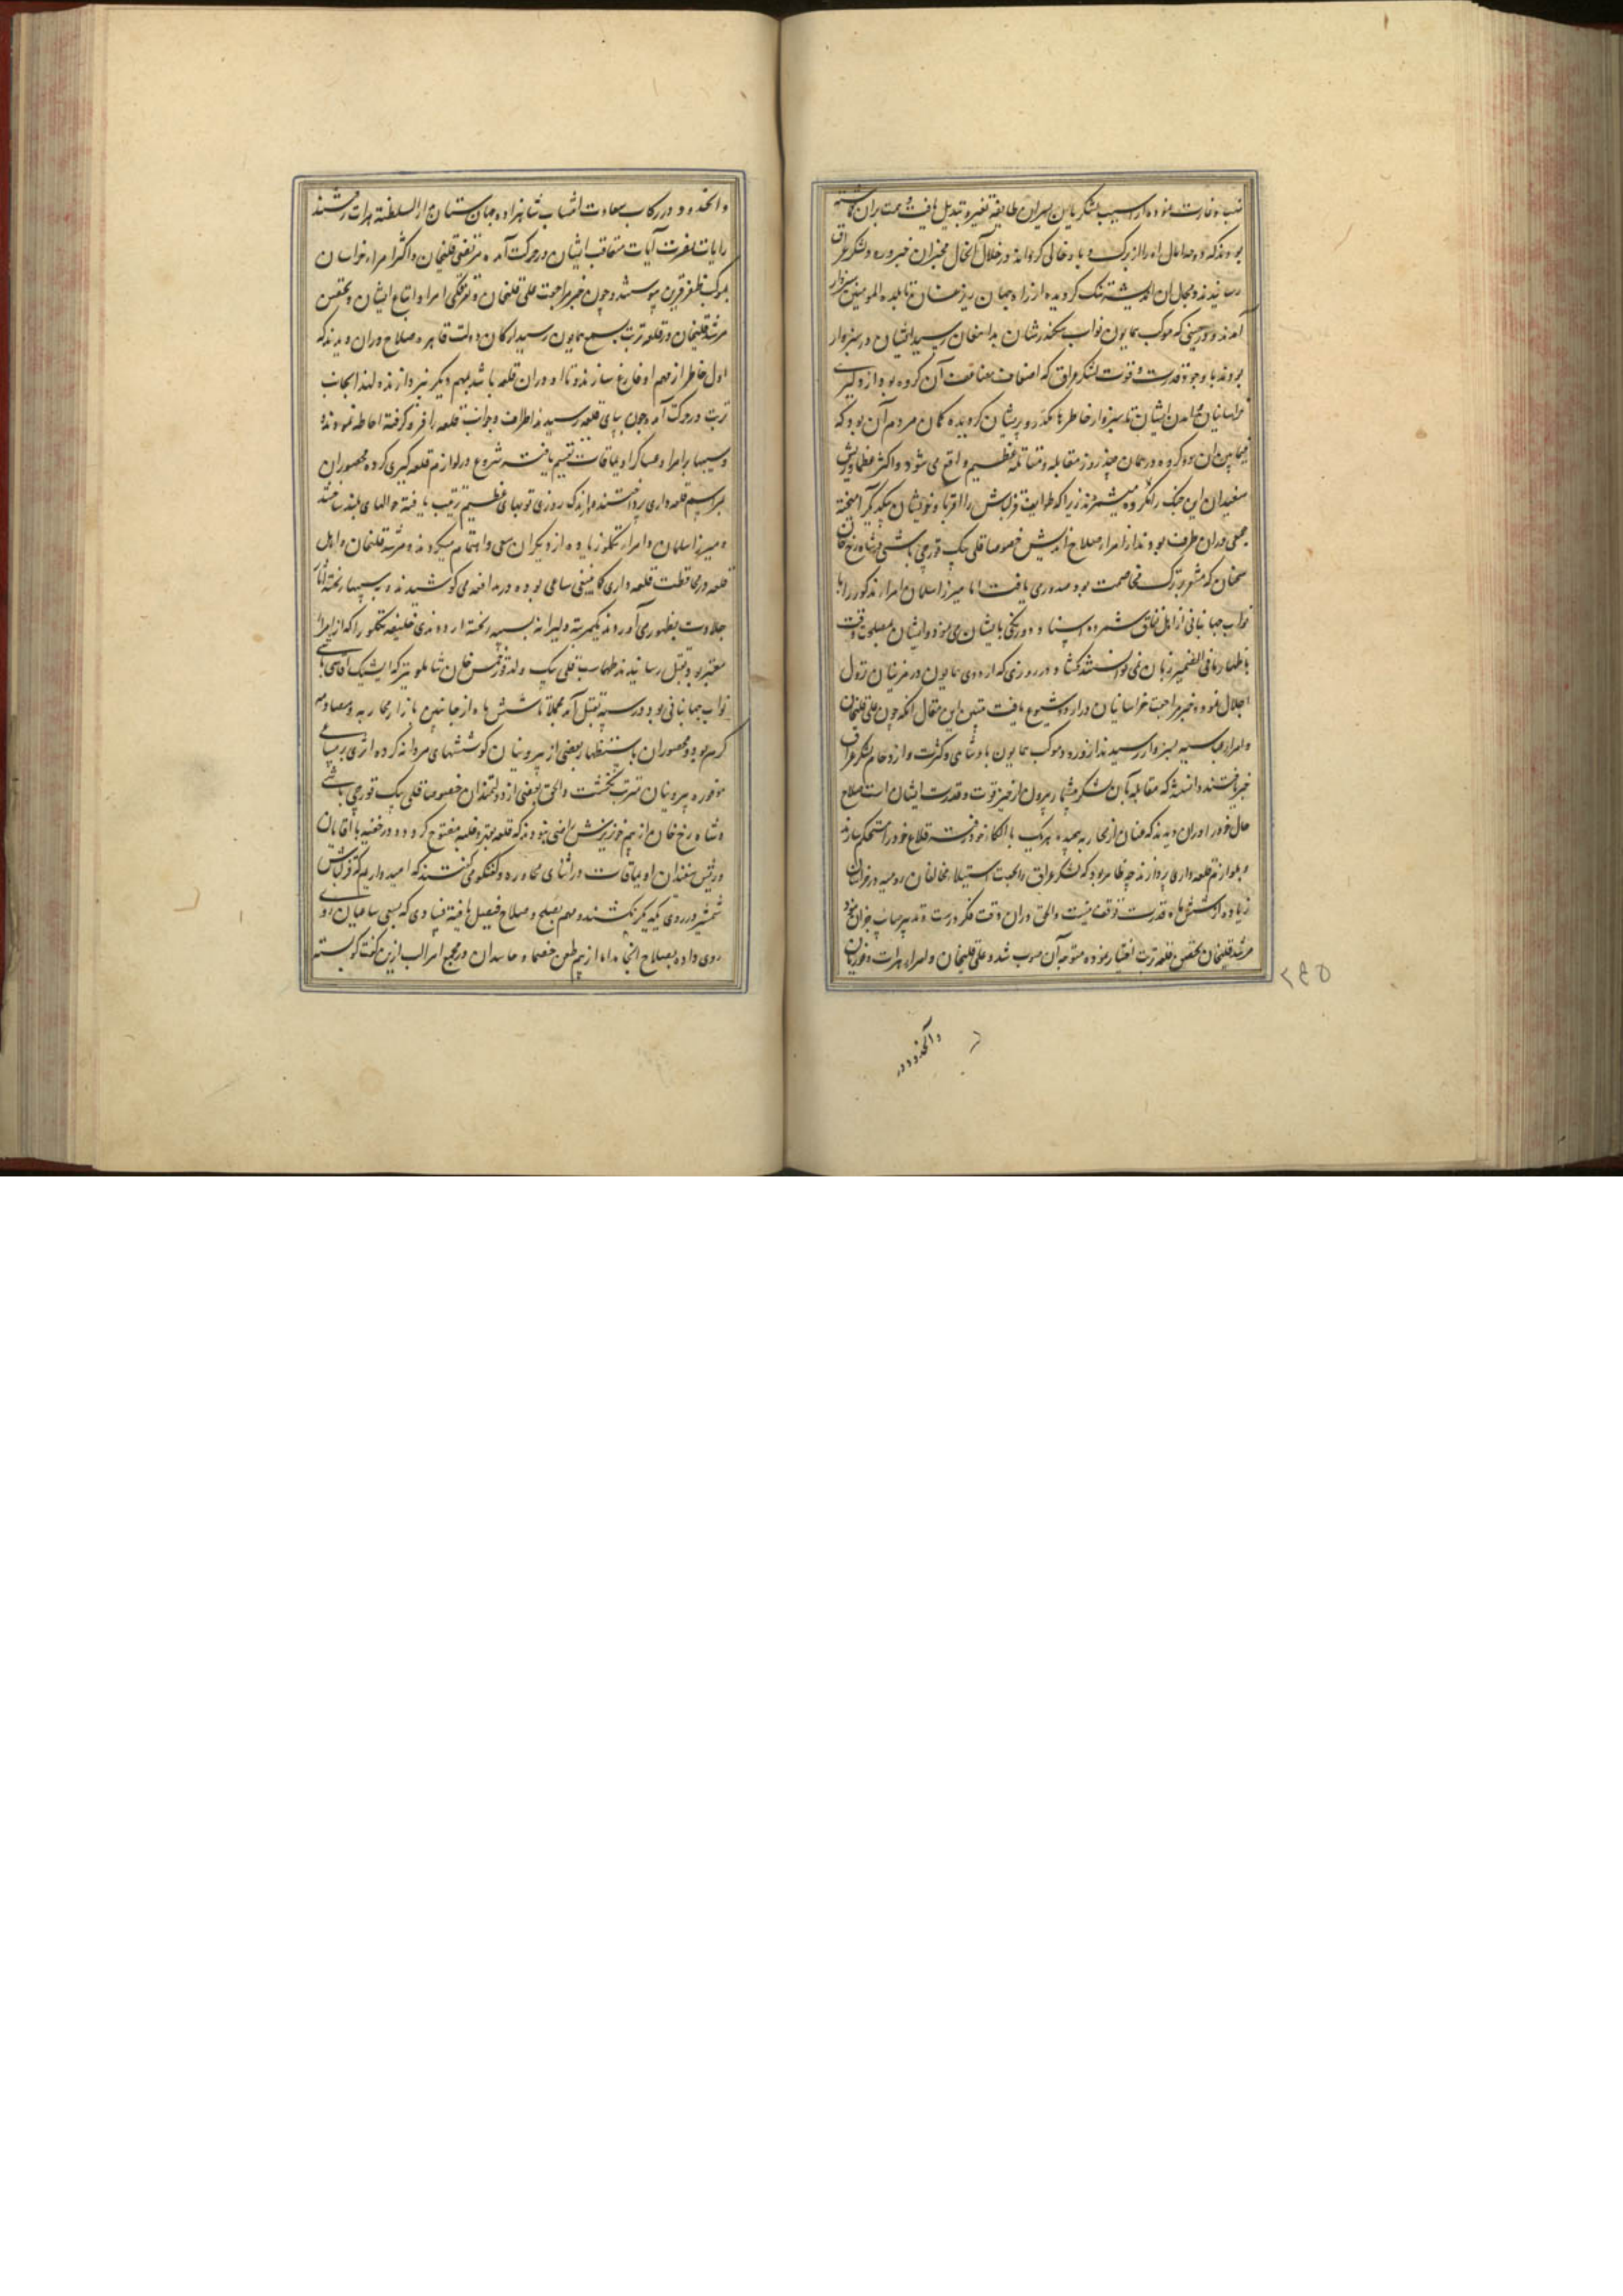 نهب و غارت نموده از آسیب لشکر یا این ایران طایفه تغییر و تبدیل یافت و همت بران گماشته
بودند که و خالی کرده اند در خلال آنحال مخبران خبر ورود لشکر عراق
رسانیدند و مجال ان اندیشه تنک کردیده از راه جهان ریز عنان تا بلده المومنین سبزوار
آمدند و در حینی که موکب همایون نواب سکندرشان بدامغان رسید ایشان در سبزوار
بودند با وجود قدرت و قوت لشکر عراق که اضعاف مضاعف آن کروه بود از دلیری
خراسانیان و آمدن ایشان تا سبزوار خاطرها مکدر و پریشان کردیده کمان مردم آن بود که
فیمابین ان دو کروه در همان چند روز مقابله و مقاتله عظیم واقع می شود و اکثر عظما و ریش
سفیدان این جنک را مکروه میشمردند زیرا که طوایف قزلباش را اقربا و خویشان بیکدیکر آمیخته
جمعی دران طرف بودند از امراء صلاح اندیش خصوصا قلی بیک قورچی باشی و شاه رخ خان
سخنان که مشعر بترک مخاصمت بود صدور می یافت اما میرزا سلمان امراء مذکور را با
نواب جهانبانی از اهل نفاق شمرده اسناد دورنکی بایشان می نمود و ایشان بمصلحت وقت
باظهار مافی الضمیر زبان نمی توانستند کشاد و در روزی که اردوی همایون در مزینان نزول
اجلال نمود خبر مراجعت خراسانیان در اردو شیوع یافت مبین این مقال انکه چون علی قلیخان
و امراء عباسیه بسبزوار رسیدند از ورود موکب همایون پادشاهی و کثرت و ازدحام لشکر عراق
خبر یافتند دانستند که مقابله بآن لشکر بیشمار بیرون از حیز قوت و قدرت ایشان است صلاح
حال خود را دران دیدند که عنان از محاربه پیچیده هر یک بالکاء خود رفته قلاع خود را مستحکم سازند
و بلوازم قلعه داری پردازند چه ظاهر بود که لشکر عراق را بجهت استیلاء مخالفان رومیه در خراسان
زیاده از شش ماه قدرت توقف نیست والحق دران وقت فکر درست و تدبیر صایب جز این نبود
مرشد قلیخان تحصن قلعه تربت اختیار نموده متوجه آن صوب شد و علی قلیخان و امراء هرات و غوریان
۲۹۵
و آنحدود در
و آنحدود در رکاب سعادت انتساب شاهزاده جهان ستان دارالسلطنه هرات رفتند
رایات نصرت آیات متعاقب ایشان در حرکت آمده مرتضی قلیخان و اکثر امراء خراسان
بموکب ظفر قرین پیوستند و چون خبر مراجعت علی قلیخان و تفرقکی امرا و اتباع ایشان و تحصن
مرشد قلیخان در قلعه تربت بسمع همایون رسید ارکان دولت قاهره صلاح دران دیدند که
اول خاطر از مهم او فارغ سازند و تا او دران قلعه باشد بمهم دیکر نپردازند لهذا بجانب
تربت در حرکت آمده چون بپای قلعه رسیدند اطراف و جوانب قلعه را فرو کرفته احاطه نمودند
و سیبها بر امرا و عساکر و اویماقات تقسیم یافته شروع در لوازم قلعه کیری کرده محصوران
بمراسم قلعه داری پرداختند و در اندک روزی توپهای عظیم ترتیب یافته حوالهای بلند ساختند
و میرزا سلمان و امراء تکلو زیاده از دیکران سعی و اهتمام میکردند و مرشد قلیخان و اهل
قلعه در محافظت قلعه داری کما ینبغی ساعی بوده در مدافعه می کوشیدند و به سیبها ریخته آثار
جلادت بظهور می آوردند یکمرتبه دلیرانه بسیبه ریخته اردوغدی خلیفه تکلو را که از امراء
معتبر بود بقتل رسانیدند طهماسب قلی بیک ولد قورخمس خان شاملو نیز که ایشیک آقاسی باشی
نواب جهانبانی بود در سیبه بقتل آمد مجملا تا شش ماه از جانبین بازار محاربه و مصادمه
کرم بود و محصوران باستظهار بعضی از بیرونیان کوششهای مردانه کرده اثری بر مساعی
موفوره بیرونیان مترتب نکشت والحق بعضی از دولتمندان خصوصا قلی بیک قورچی باشی
و شاه رخ خان از بیم خونریزش راضی نبودند که قلعه بقهر و غلبه مفتوح کردد و در خفیه با آقایان
و ریش سفیدان اویماقات در اثنای محاوره و کفتکو می کفتند که امیدواریم که قزلباش
شمشیر در روی یکدیکر نکشند و مهم بصلح و صلاح فیصل یافته فسادی که بسعی ساعیان روی
روی داده بصلاح انجامد اما از بیم طعن خصما و حاسدان در مجمع امرا لب ازین کفتکو بسته